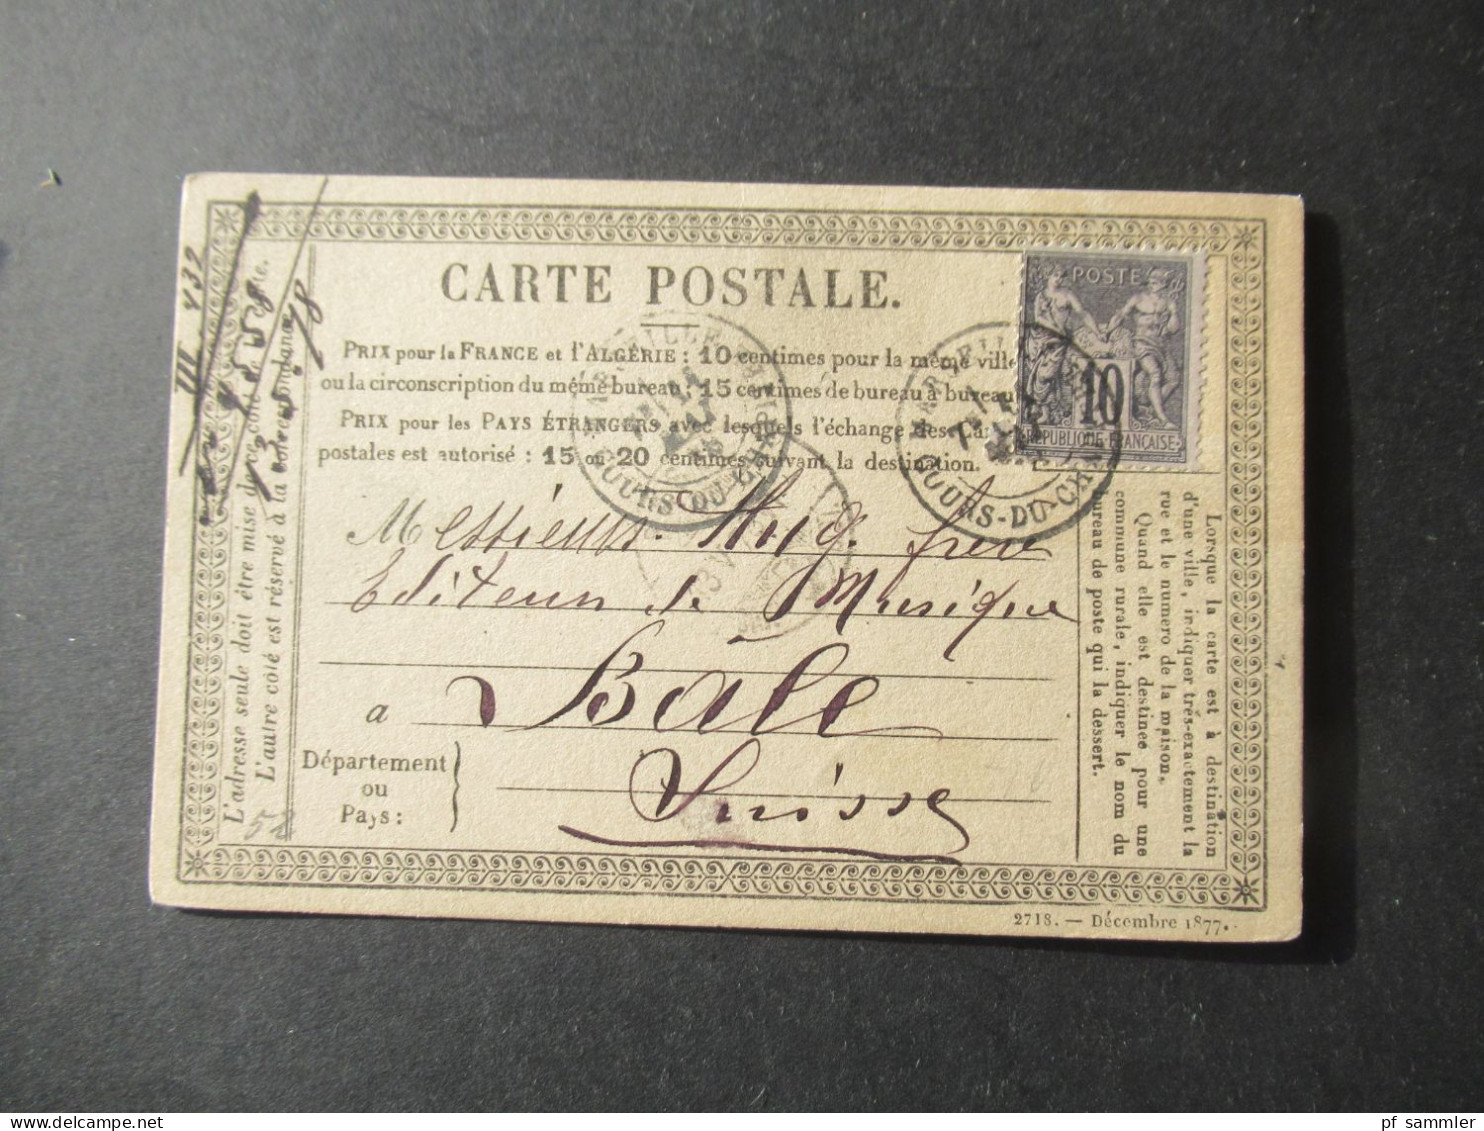 CARTE POSTALE.
PRIX pour la FRANCE et l'ALGÉRIE : 10 centimes pour la même ville
ou la circonscription du même bureau ; 15 centimes de bureau à bureau
PRIX pour les PAYS ÉTRANGERS avec lesquels l'échange des
postales est autorisé : 15 ou 20 centimes suivant la destination.
POSTE
10
RÉPUBLIQUE FRANÇAISE
MARSEILLE
COURS-DU-CH
MARSEILLE
COURS-DU-CH
Messieurs Hug frère
Editeur de Musique
a Bâle
Département
ou
Pays :
Suisse
L'adresse seule doit être mise de ce côté de la carte.
L'autre côté est réservé à la correspondance.
432
78
52
Lorsque la carte est à destination
d'une ville, indiquer très-exactement la
rue et le numéro de la maison.
Quand elle est destinée pour une
commune rurale, indiquer le nom du
bureau de poste qui la dessert.
2718. — Décembre 1877.
pf sammler